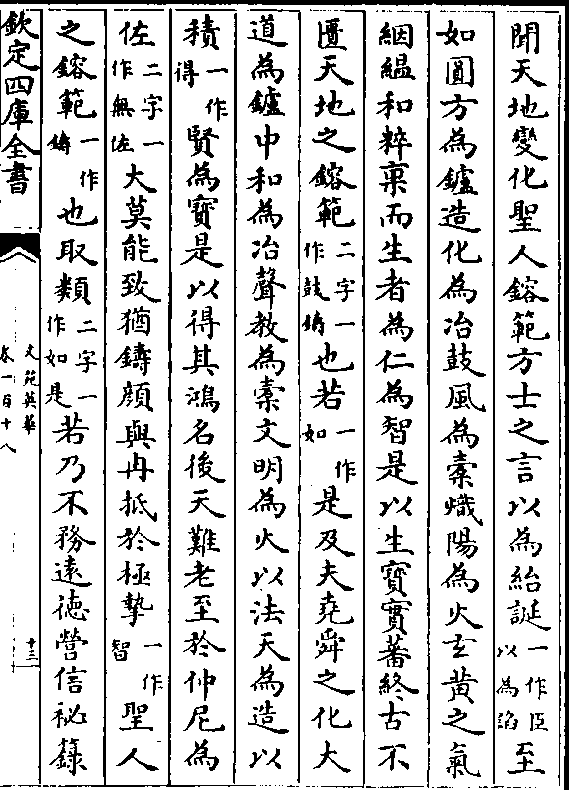 聞天地變化聖人鎔範方士之言以為紿誕一作臣以為諂至
如圓方為鑪造化為冶鼓風為橐熾陽為火玄黄之氣
絪緼和粹稟而生者為仁為智是以生寳實蕃終古不
匱天地之鎔範二字一作鼓鑄也若一作如是及夫堯舜之化大
道為鑪中和為冶聲教為橐文明為火以法天為造以
積一作得賢為寳是以得其鴻名後天難老至於仲尼為
佐二字一作無佐大莫能致猶鑄顔與冉抵於極摯一作智聖人
之鎔範一作鑄也取類二字一作如是若乃不務遠徳營信祕籙
欽定四庫全書
文苑英華
卷一百十八
十三